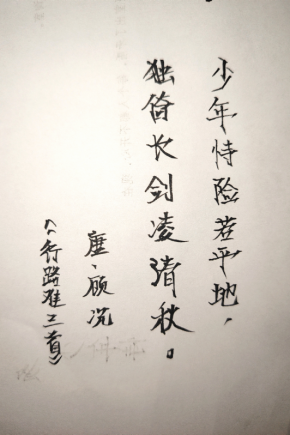 少年恃险若平地，
独倚长剑凌清秋。
唐、顾况
《行路难三首》